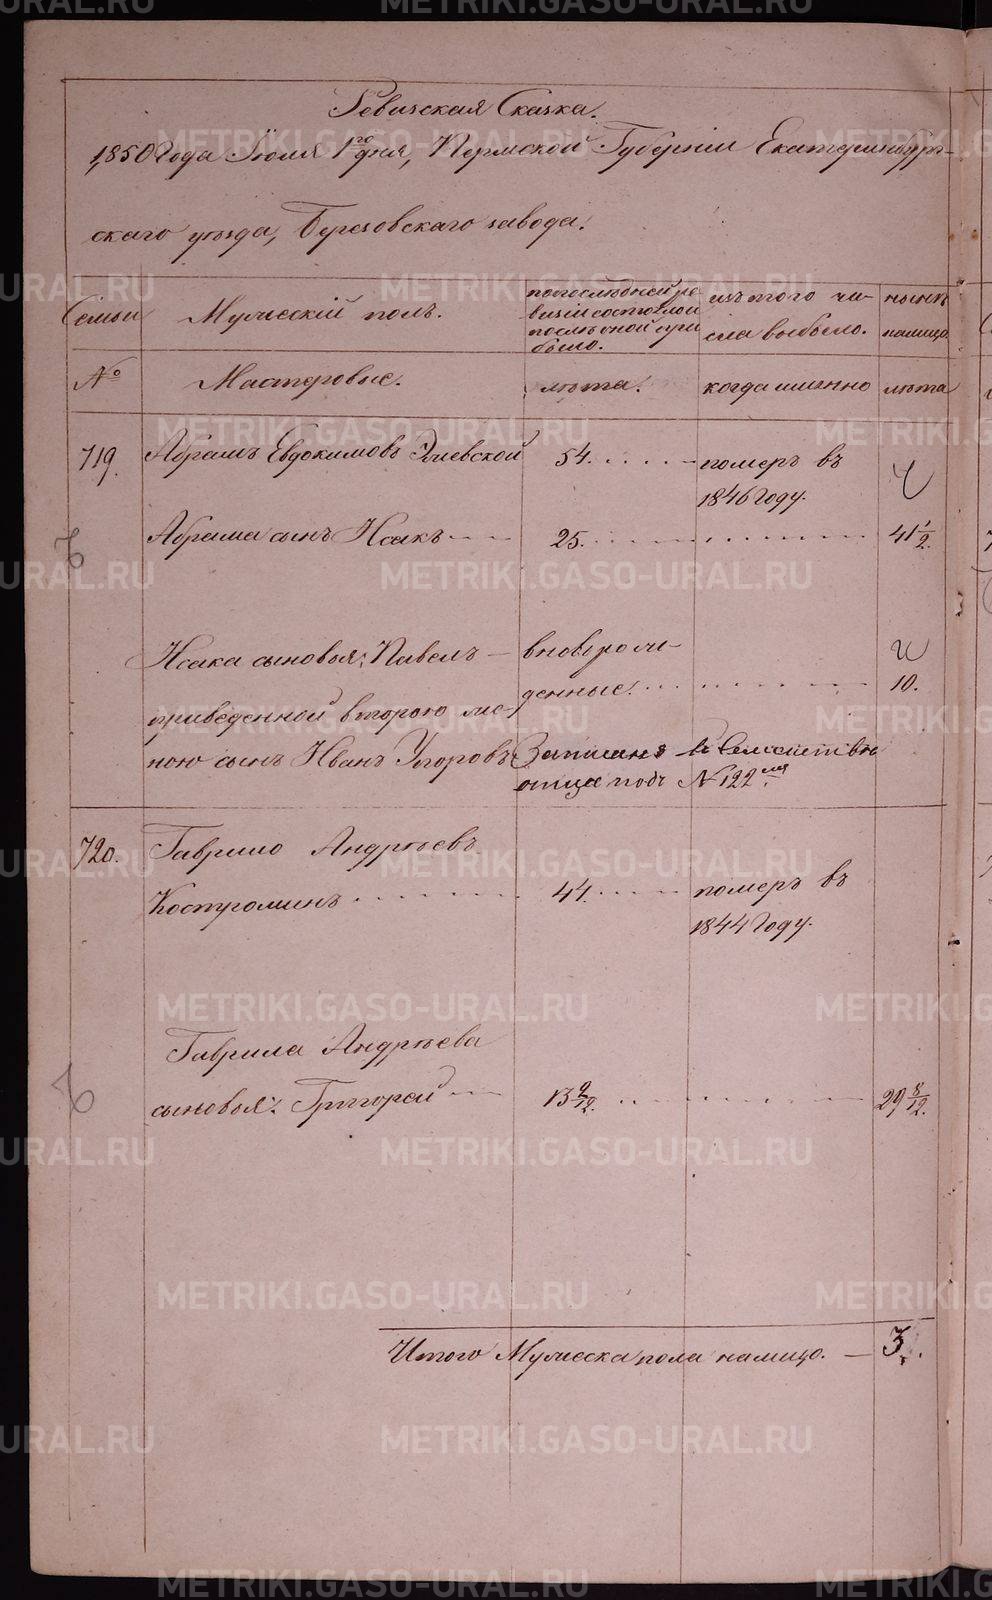 Ревизская Сказка.
1850 Года Июля 1го дня, Пермской Губерніи Екатеринбург-
скаго уѣзда, Березовскаго завода.
Семьи
Мужескій полъ.
по последней ре
визіи состояло и
послѣ оной при
было.
изъ того чи-
сла выбыло.
нынѣ
налицо.
№
Мастеровые.
лѣта.
когда именно
лѣта
719.
Абрамъ Евдокимовъ
54.
померъ въ
1846 Году.
Абрама сынъ Исакъ
25.
41 1/2.
Исака сыновья: Павелъ
вноврож-
денные.
10.
приведенной второю же-
ною сынъ Иванъ Егоровъ
Записанъ в Семействѣ
отца подъ № 122мъ
720.
Гаврило Андреевъ
Костроминъ
44.
померъ въ
1844 Году.
Гаврила Андреева
сыновья: Григорей
13 9/12.
29 8/12.
Итого Мужеска пола налицо. — 3.
METRIKI.GASO-URAL.RU